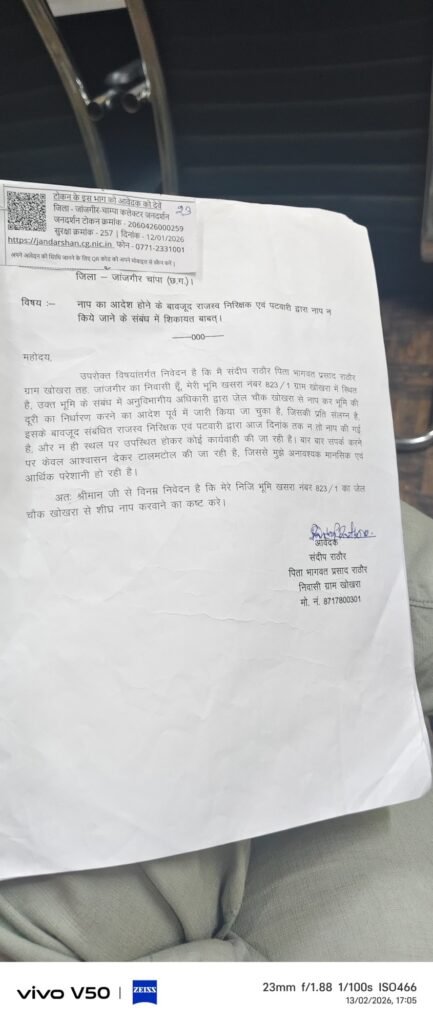 टोकन के इस भाग को आवेदक को देवें
जिला - जांजगीर-चाम्पा कलेक्टर जनदर्शन
23
जनदर्शन टोकन क्रमांक - 2060426000259
सुरक्षा क्रमांक - 257 | दिनांक - 12/01/2026
https://jandarshan.cg.nic.in फोन - 0771-2331001
अपने आवेदन की स्थिति जानने के लिए QR कोड को अपने मोबाइल से स्कैन करें।
जिला – जांजगीर चांपा (छ.ग.)।
विषय :– नाप का आदेश होने के बावजूद राजस्व निरिक्षक एवं पटवारी द्वारा नाप न
किये जाने के संबंध में शिकायत बाबत्।
——000——
महोदय,
उपरोक्त विषयांतर्गत निवेदन है कि मैं संदीप राठौर पिता भागवत प्रसाद राठौर
ग्राम खोखरा तह. जांजगीर का निवासी हूँ, मेरी भूमि खसरा नंबर 823/1 ग्राम खोखरा में स्थित
है, उक्त भूमि के संबंध में अनुविभागीय अधिकारी द्वारा जेल चौक खोखरा से नाप कर भूमि की
दूरी का निर्धारण करने का आदेश पूर्व में जारी किया जा चुका है, जिसकी प्रति संलग्न है,
इसके बावजूद संबंधित राजस्व निरिक्षक एवं पटवारी द्वारा आज दिनांक तक न तो नाप की गई
है, और न ही स्थल पर उपस्थित होकर कोई कार्यवाही की जा रही है। बार बार संपर्क करने
पर केवल आश्वासन देकर टालमटोल की जा रही है, जिससे मुझे अनावश्यक मानसिक एवं
आर्थिक परेशानी हो रही है।
अतः श्रीमान जी से विनम्र निवेदन है कि मेरे निजि भूमि खसरा नंबर 823/1 का जेल
चौक खोखरा से शीघ्र नाप करवाने का कष्ट करे।
आवेदक
संदीप राठौर
पिता भागवत प्रसाद राठौर
निवासी ग्राम खोखरा
मो. नं. 8717800301
vivo V50 | ZEISS
23mm f/1.88 1/100s ISO466
13/02/2026, 17:05